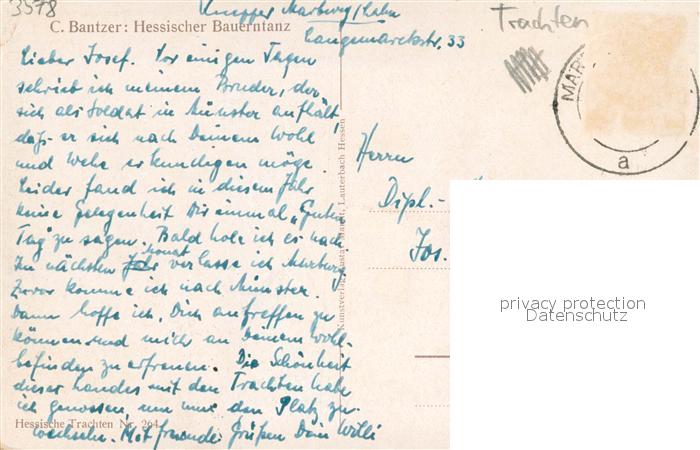 3578
Knepper Marburg/Lahn
Langemarckstr. 33
Trachten
C. Bantzer: Hessischer Bauerntanz
MAR
a
Lieber Josef. Vor einigen Tagen
schrieb ich meinem Bruder, der
sich als Soldat in Münster aufhält,
daß er sich nach Deinem Wohl
und Wehe erkundigen möge.
Leider fand ich in diesem Jahr
keine Gelegenheit Dir einmal „Guten
Tag" zu sagen. Bald hole ich es nach.
Im nächsten Monat verlasse ich Marburg.
Zuvor komme ich nach Münster.
Dann hoffe ich, Dich antreffen zu
können und mich an Deinem Wohl-
befinden zu erfreuen. Die Schönheit
dieser Landes mit den Trachten habe
ich genossen, um nun den Platz zu
wechseln. Mit freundl. Grüßen Dein Willi
Hessische Trachten Nr. 264
Kunstverlag Gustav Mandt, Lauterbach Hessen
Herrn
Dipl.-
Jos.
privacy protection
Datenschutz